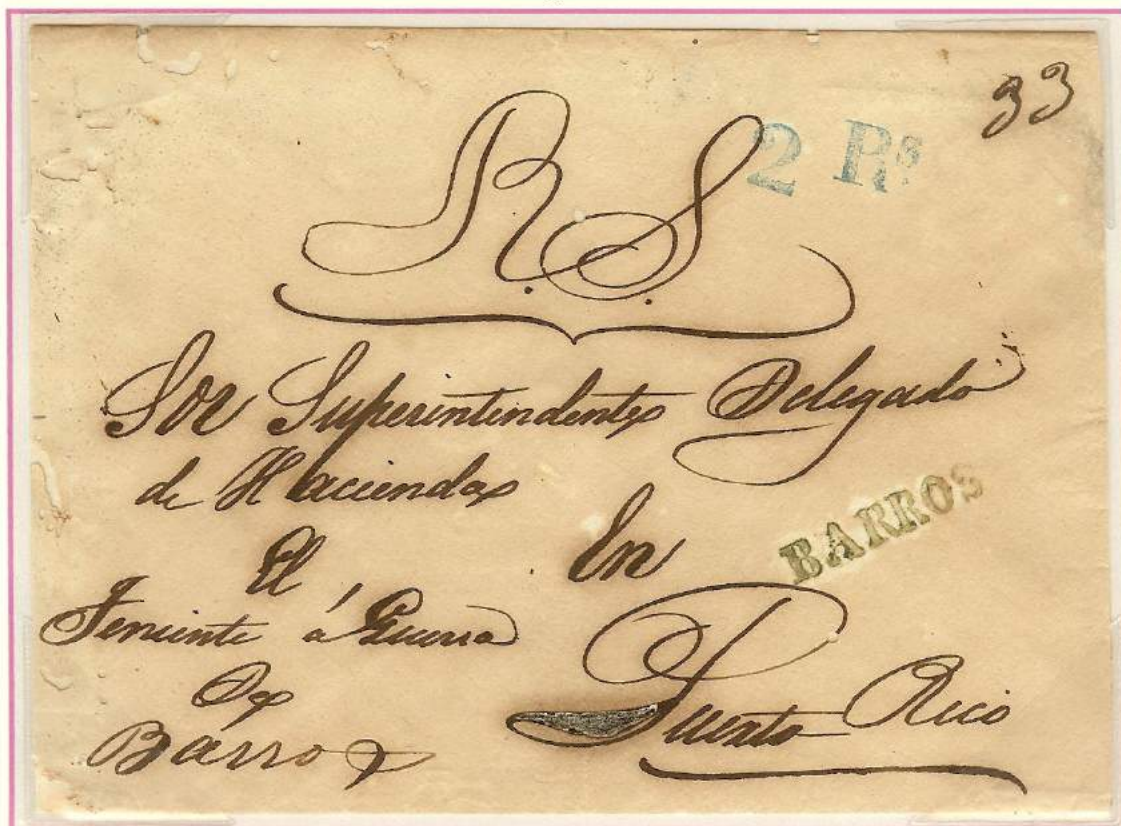 33
2 Rs
R. S.
Sor Superintendente Delegado
de Hacienda
BARROS
El En
Teniente á Guerra
De Puerto Rico
Barros